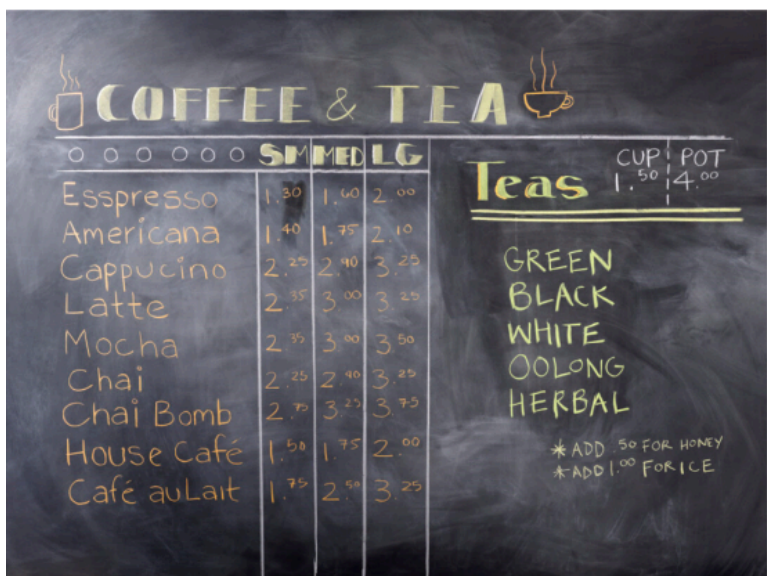 COFFEE & TEA
SM MED LG
Esspresso 1.30 1.60 2.00
Americana 1.40 1.75 2.10
Cappucino 2.25 2.90 3.25
Latte 2.35 3.00 3.25
Mocha 2.35 3.00 3.50
Chai 2.25 2.90 3.25
Chai Bomb 2.75 3.25 3.75
House Café 1.50 1.75 2.00
Café au Lait 1.75 2.50 3.25
Teas CUP POT
1.50 4.00
GREEN
BLACK
WHITE
OOLONG
HERBAL
* ADD .50 FOR HONEY
* ADD 1.00 FOR ICE